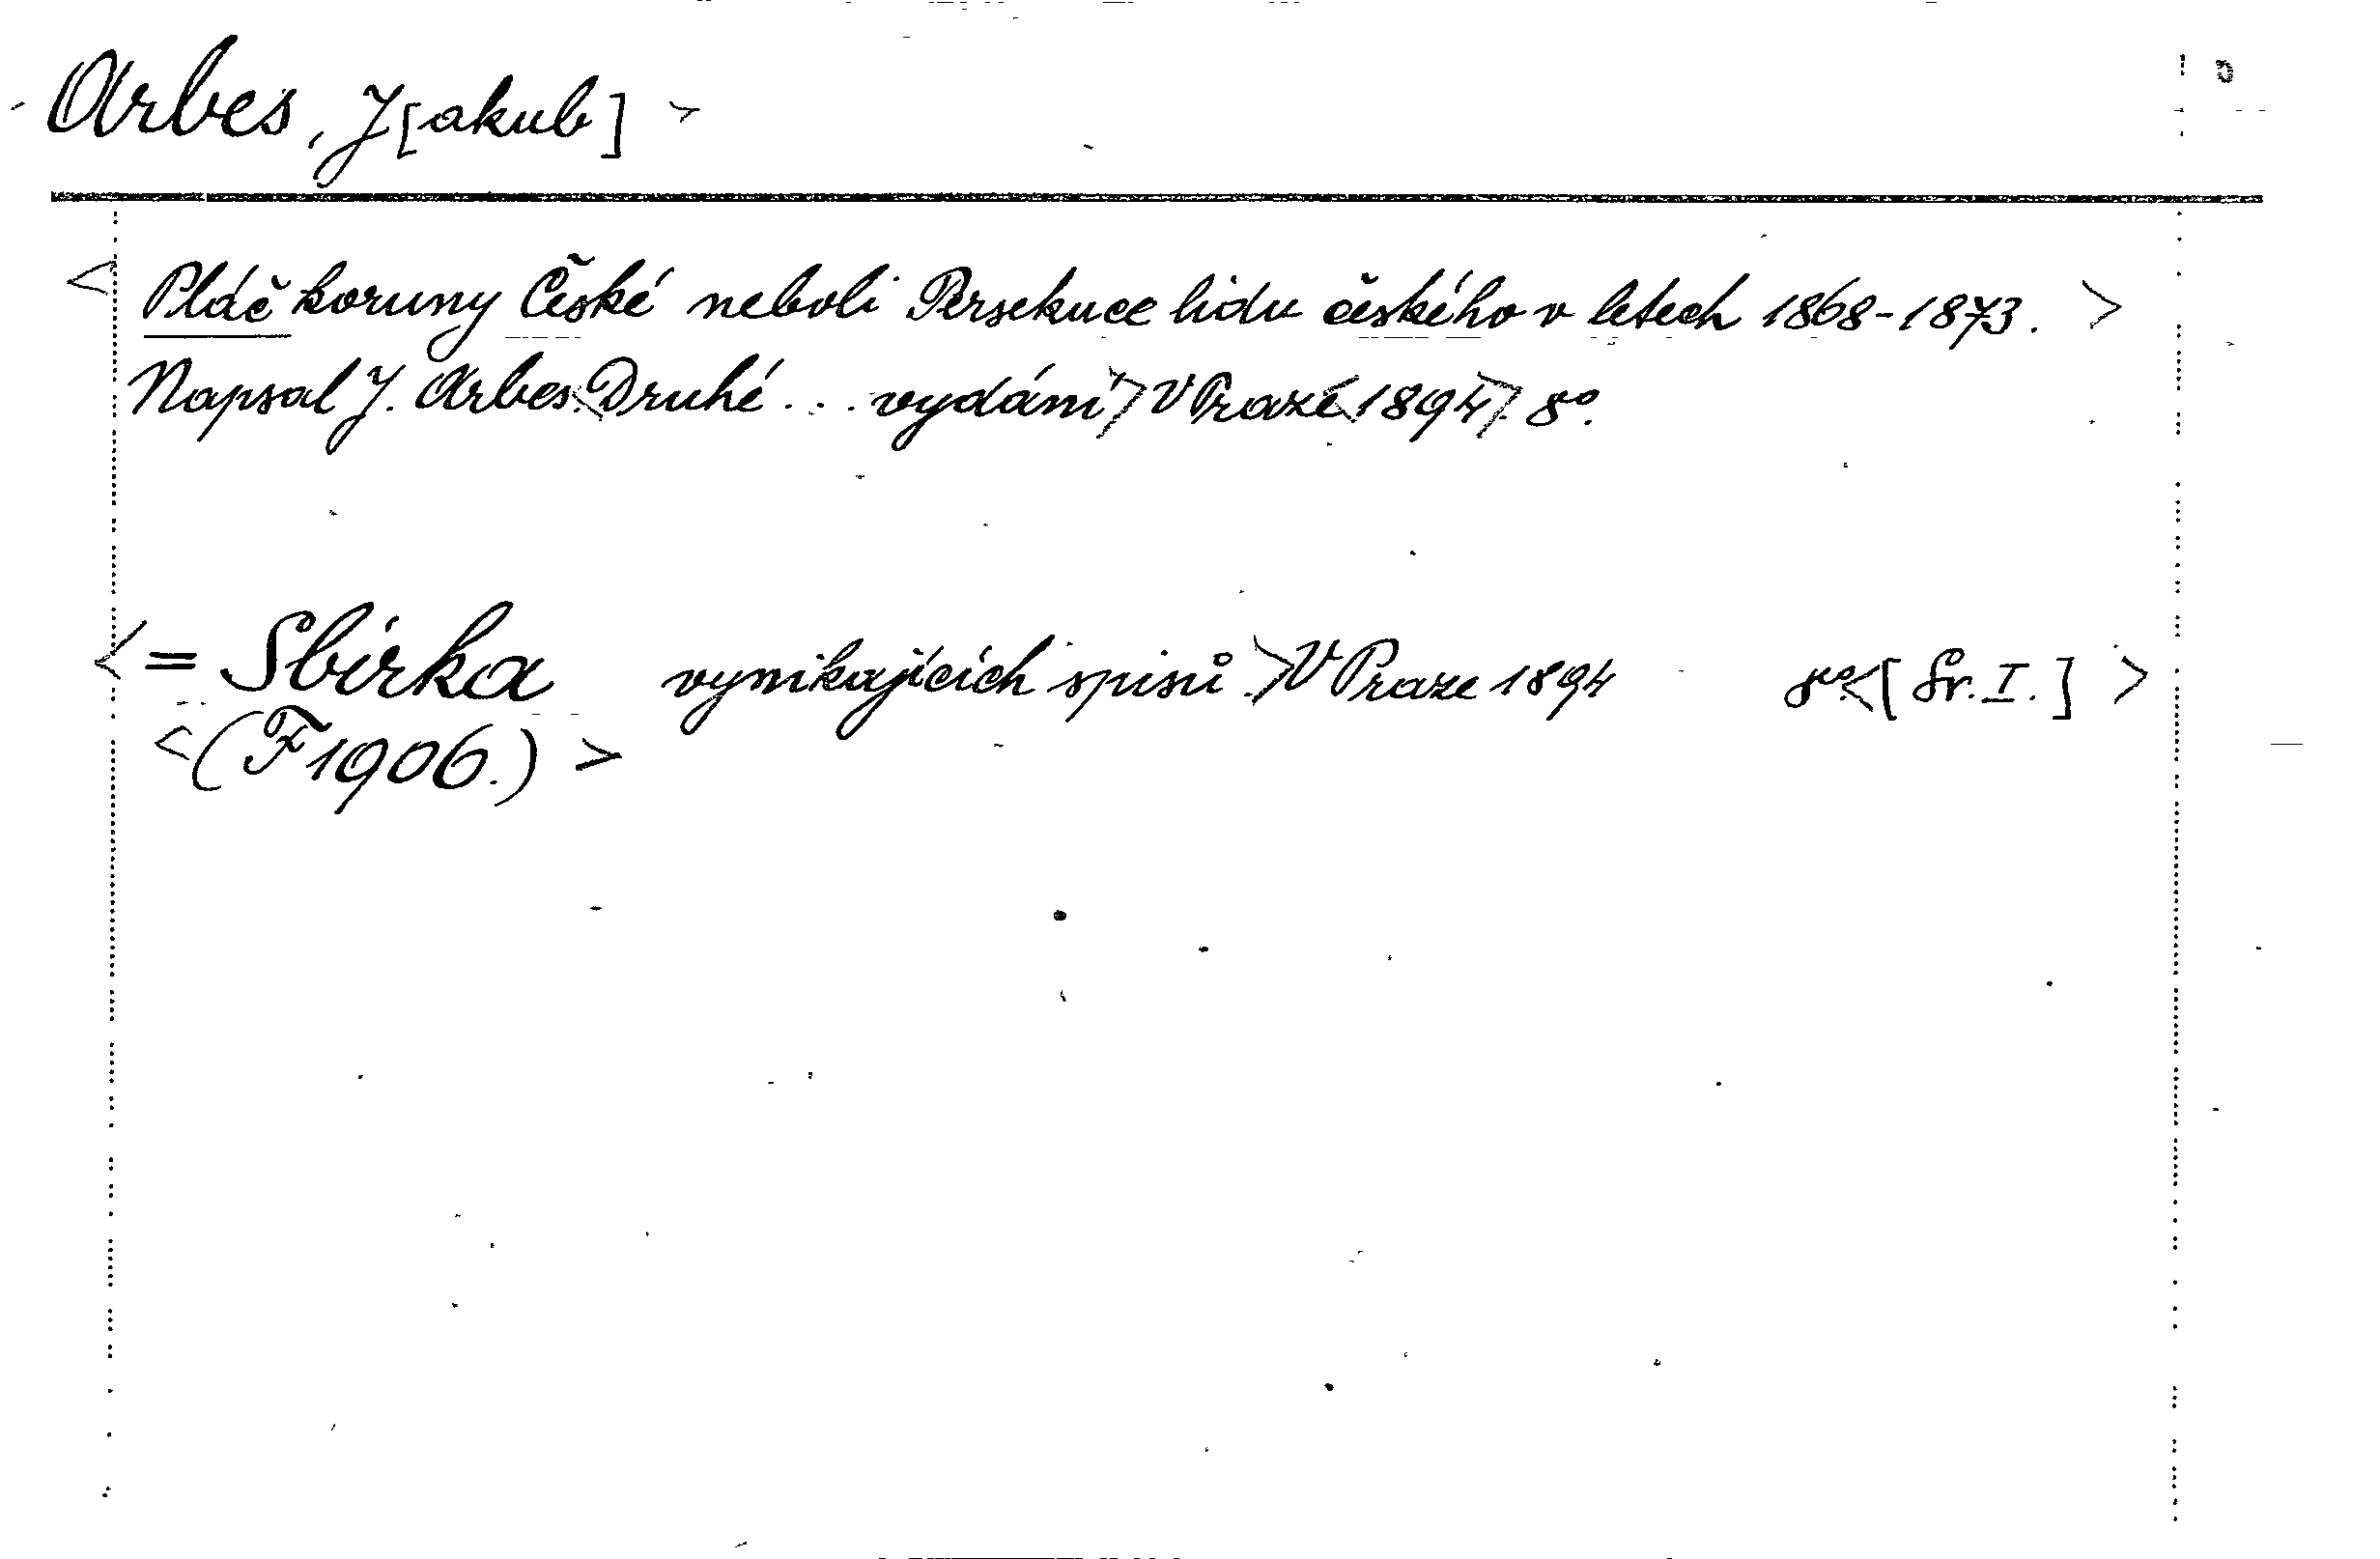 Arbes, J[akub] >
< Pláč koruny České neboli Persekuce lidu českého v letech 1868-1873. >
Napsal J. Arbes.<Druhé ... vydání> V Praze<1894>. 8°.
< = Sbírka vynikajících spisů.> V Praze 1894 8°.<[Sv. I.] >
<(F 1906.) >